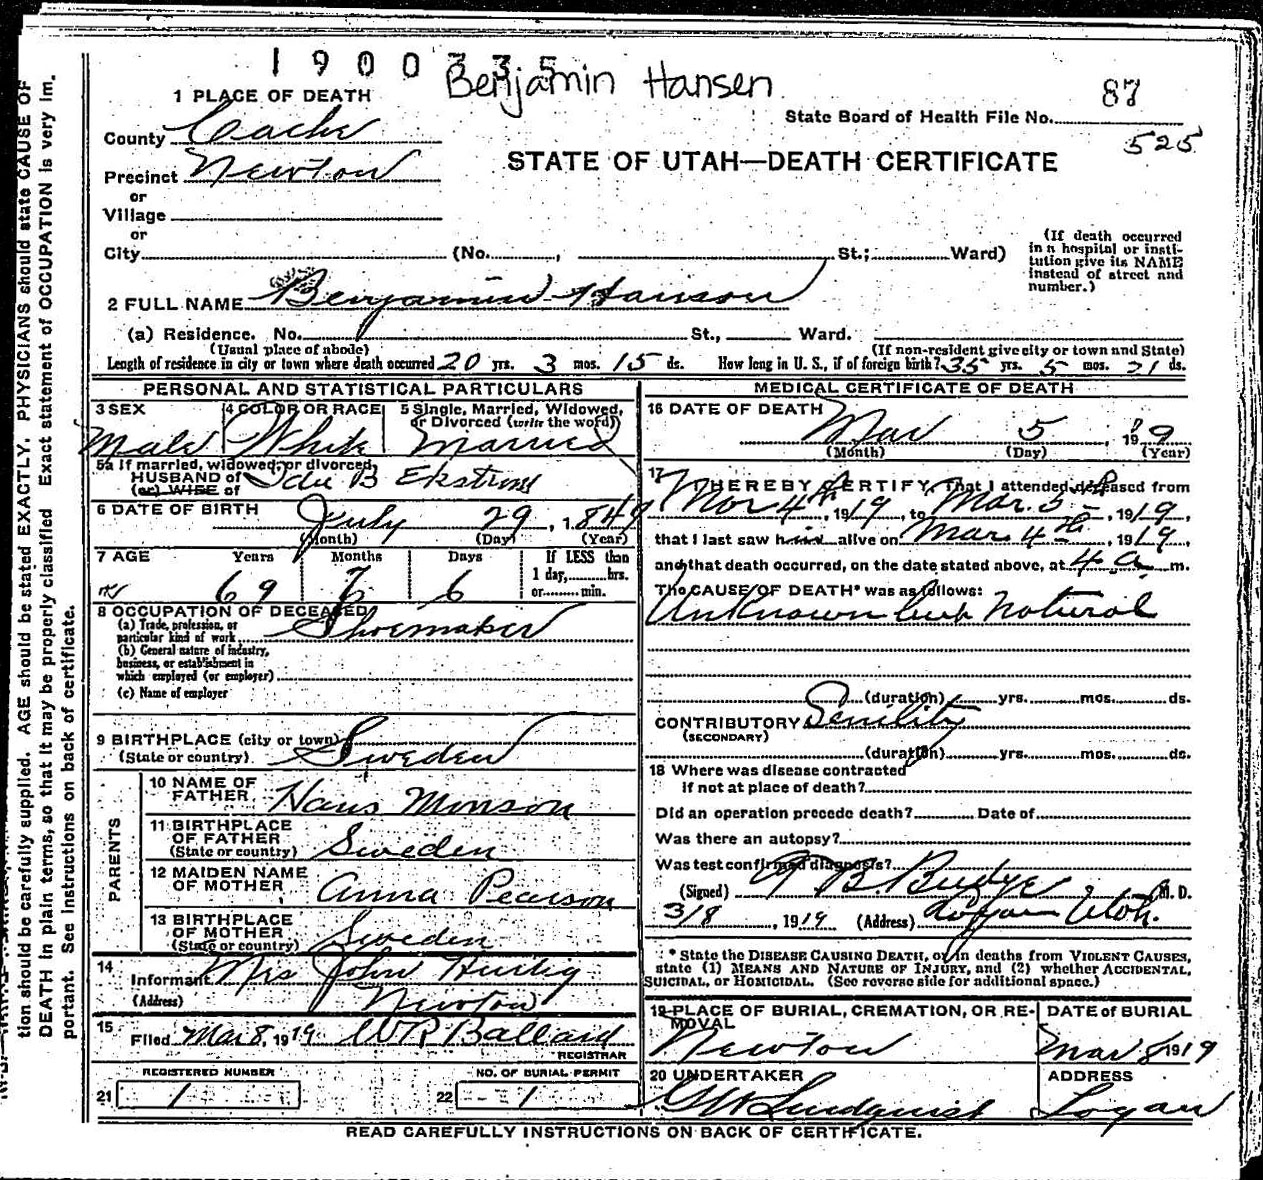 1900335
Benjamin Hansen
87
1 PLACE OF DEATH
State Board of Health File No.
525
County Cache
STATE OF UTAH—DEATH CERTIFICATE
Precinct Newton
or
Village
or
City (No. , St.; Ward)
(If death occurred
in a hospital or insti-
tution give its NAME
instead of street and
number.)
2 FULL NAME Benjamin Hanson
(a) Residence. No. St., Ward.
(Usual place of abode) (If non-resident give city or town and State)
Length of residence in city or town where death occurred 20 yrs. 3 mos. 15 ds. How long in U. S., if of foreign birth? 35 yrs. 5 mos. 21 ds.
PERSONAL AND STATISTICAL PARTICULARS
3 SEX
Male
4 COLOR OR RACE
White
5 Single, Married, Widowed,
or Divorced (write the word)
Married
5a If married, widowed, or divorced
HUSBAND of
(or) WIFE of
B Ekstrom
6 DATE OF BIRTH
July 29, 1849
(Month) (Day) (Year)
7 AGE Years Months Days
69 7 6
If LESS than
1 day, hrs.
or min.
8 OCCUPATION OF DECEASED
(a) Trade, profession, or
particular kind of work Shoemaker
(b) General nature of industry,
business, or establishment in
which employed (or employer)
(c) Name of employer
9 BIRTHPLACE (city or town)
(State or country) Sweden
PARENTS
10 NAME OF
FATHER Hans Monson
11 BIRTHPLACE
OF FATHER
(State or country) Sweden
12 MAIDEN NAME
OF MOTHER Anna Pearson
13 BIRTHPLACE
OF MOTHER
(State or country) Sweden
14
Informant Mrs John
(Address) Newton
15
Filed Mar 8, 1919 W R Ballard
REGISTRAR
REGISTERED NUMBER
21 1
NO. OF BURIAL PERMIT
22 1
MEDICAL CERTIFICATE OF DEATH
16 DATE OF DEATH
Mar 5, 1919
(Month) (Day) (Year)
17
I HEREBY CERTIFY, That I attended deceased from
Mar 4th, 1919, to Mar. 5th, 1919,
that I last saw him alive on Mar. 4th, 1919,
and that death occurred, on the date stated above, at 4 a. m.
The CAUSE OF DEATH* was as follows:
Unknown but natural
(duration) yrs. mos. ds.
CONTRIBUTORY Senility
(SECONDARY)
(duration) yrs. mos. ds.
18 Where was disease contracted
if not at place of death?
Did an operation precede death? Date of
Was there an autopsy?
Was test confirmed diagnosis?
(Signed) B Budge M. D.
3/8, 1919 (Address) Logan Utah.
* State the DISEASE CAUSING DEATH, or in deaths from VIOLENT CAUSES,
state (1) MEANS AND NATURE OF INJURY, and (2) whether ACCIDENTAL,
SUICIDAL, or HOMICIDAL. (See reverse side for additional space.)
19 PLACE OF BURIAL, CREMATION, OR RE-
MOVAL
Newton
DATE of BURIAL
Mar 8 1919
20 UNDERTAKER
Lindquist
ADDRESS
Logan
READ CAREFULLY INSTRUCTIONS ON BACK OF CERTIFICATE.
tion should be carefully supplied. AGE should be stated EXACTLY. PHYSICIANS should state CAUSE OF
DEATH in plain terms, so that it may be properly classified Exact statement of OCCUPATION is very im.
portant. See instructions on back of certificate.